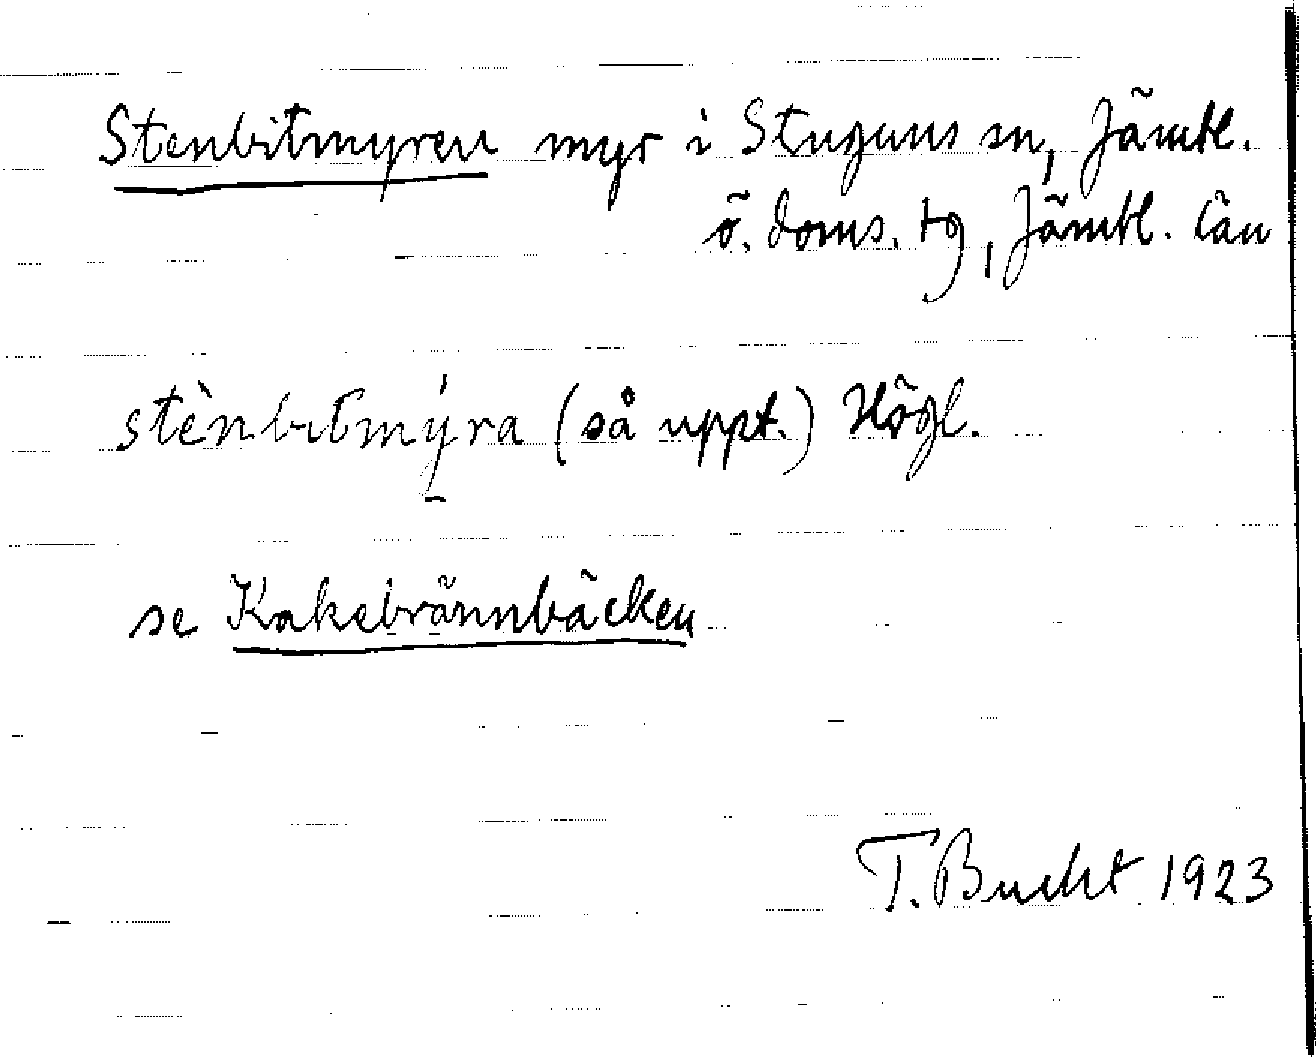 Stenbitmyren myr i Stuguns sn, Jämtl.
ö. doms. tg, Jämtl. län
stènbitmý̱ra (så uppt.) Högl.
se Kakebrännbäcken
T. Bucht 1923